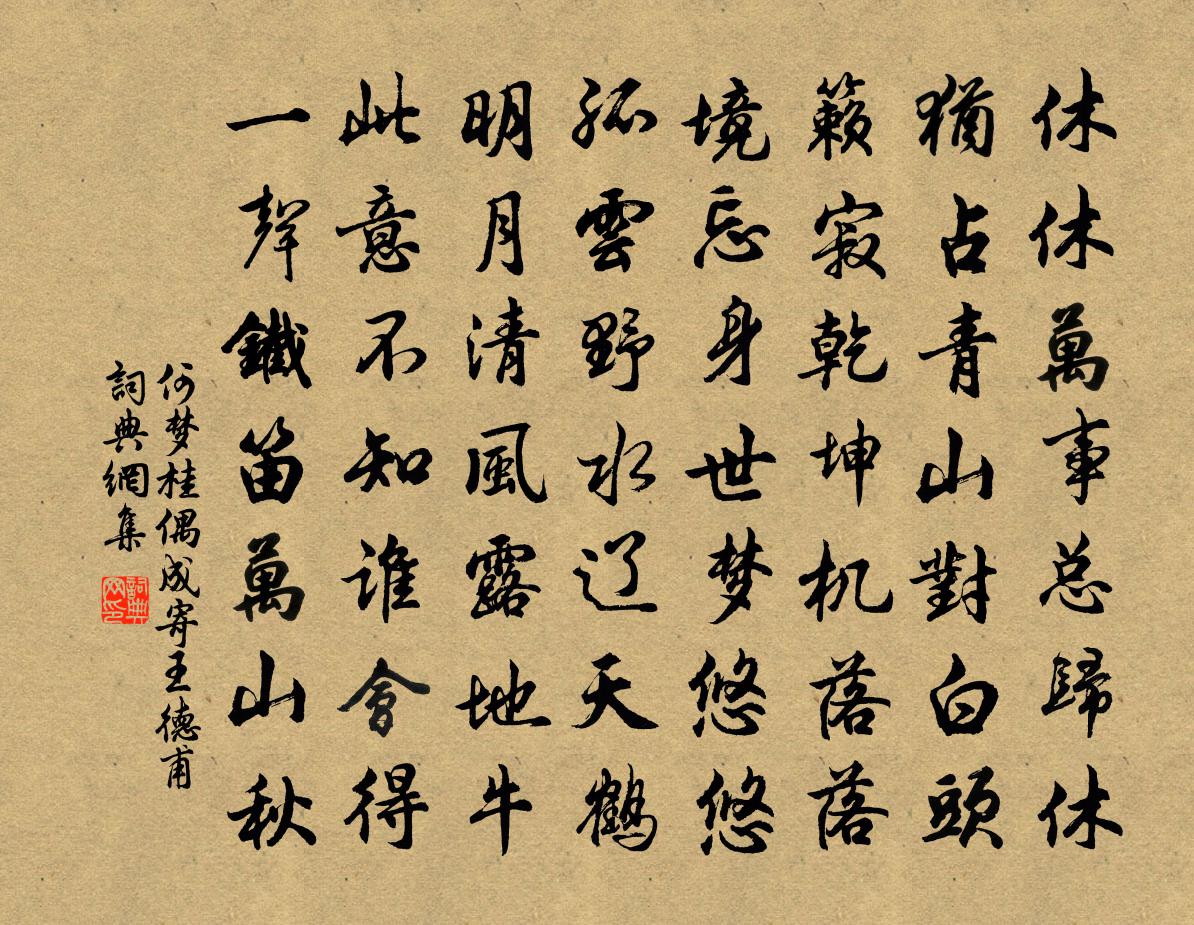 休休萬事总歸休
猶占青山對白頭
籁寂乾坤机落落
境忘身世梦悠悠
孤雲野水辽天鹤
明月清風露地牛
此意不知谁會得
一聲鐵笛萬山秋
何梦桂偶成寄王德甫
詞典網集
詞典网印